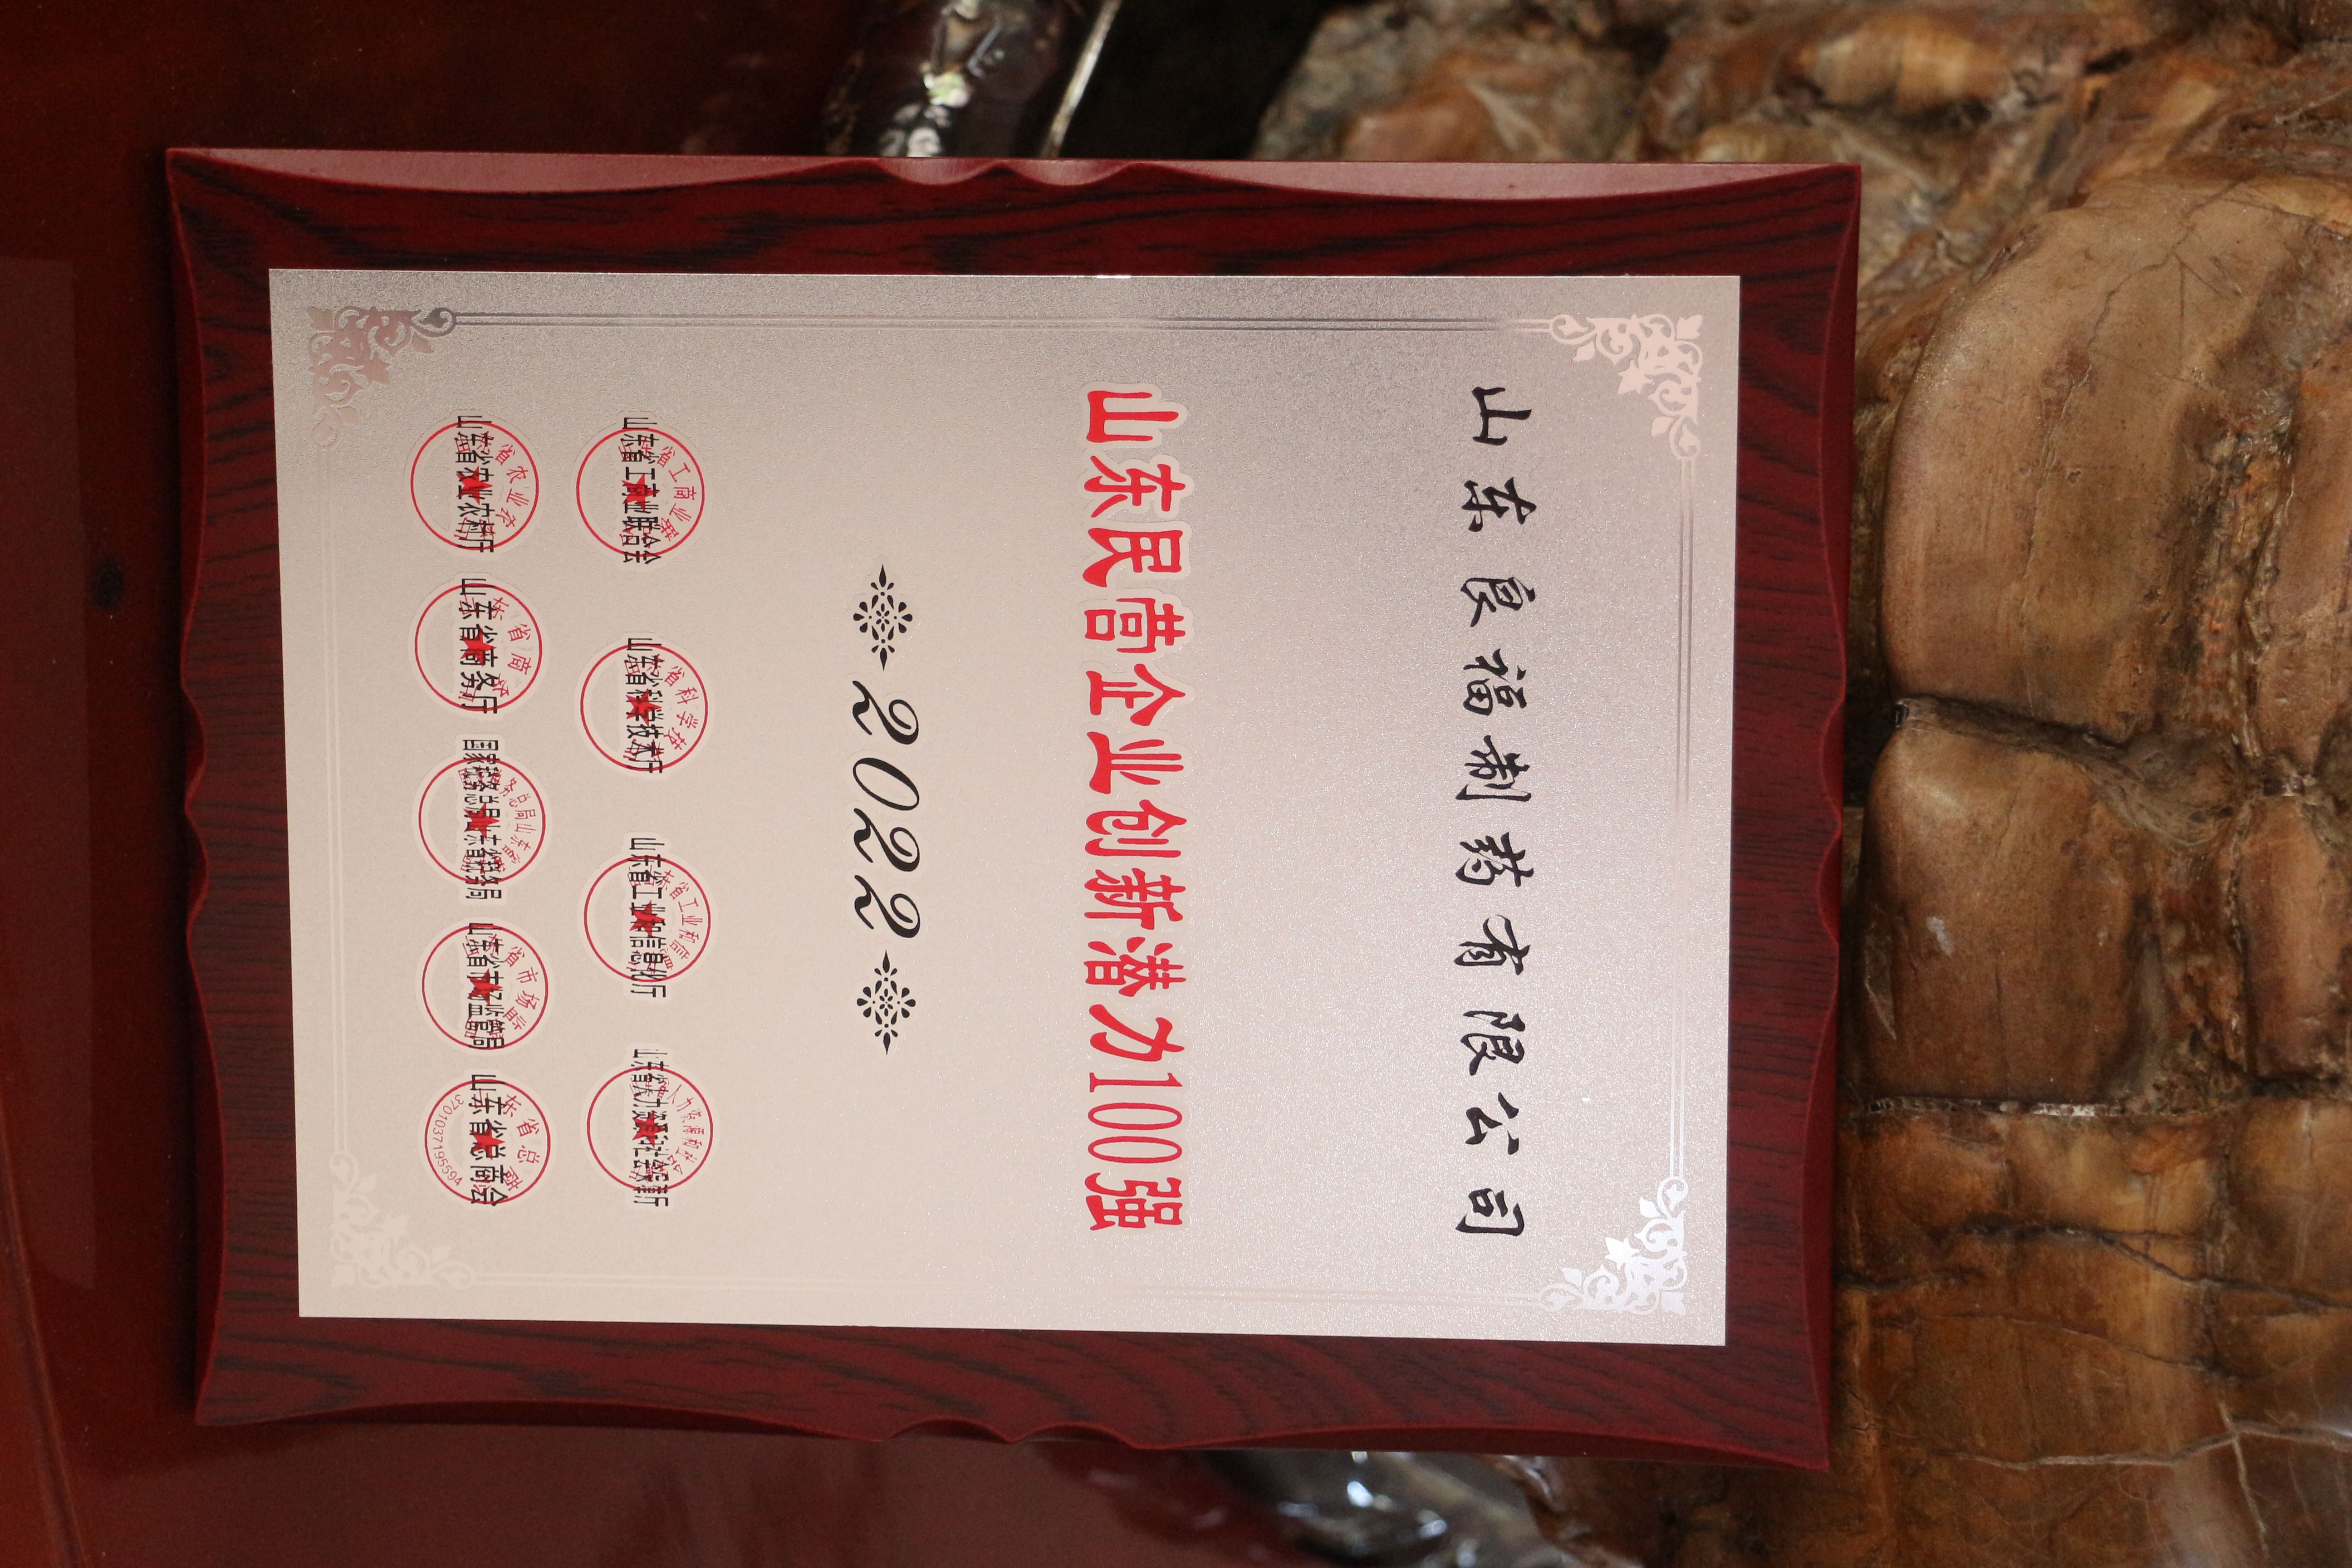 山东良福制药有限公司
山东民营企业创新潜力100强
2022
山东省工商业联合会 山东省科学技术厅 山东省工业和信息化厅 山东省人力资源和社会保障厅
山东省农业农村厅 山东省商务厅 国家税务总局山东省税务局 山东省市场监管局 山东省总商会
3701037195594